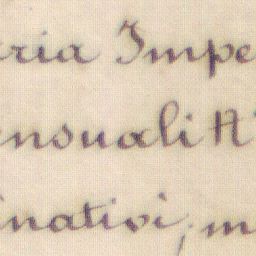 eria Impe
ensualità
inativi, m